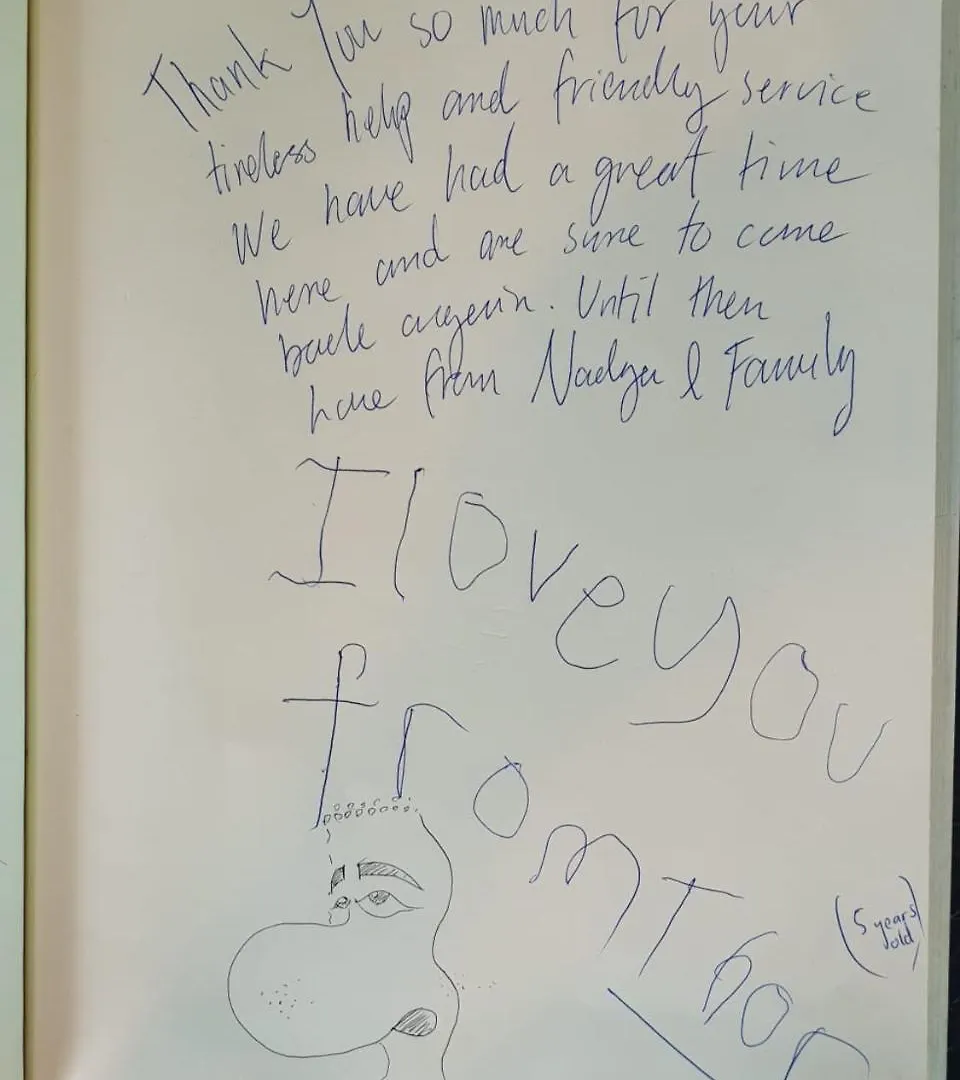 Thank You so much for your
tireless help and friendly service
We have had a great time
here and are sure to come
back again. Until then
love from Nadya & Family
I love you
from Thor
(5 years
old)